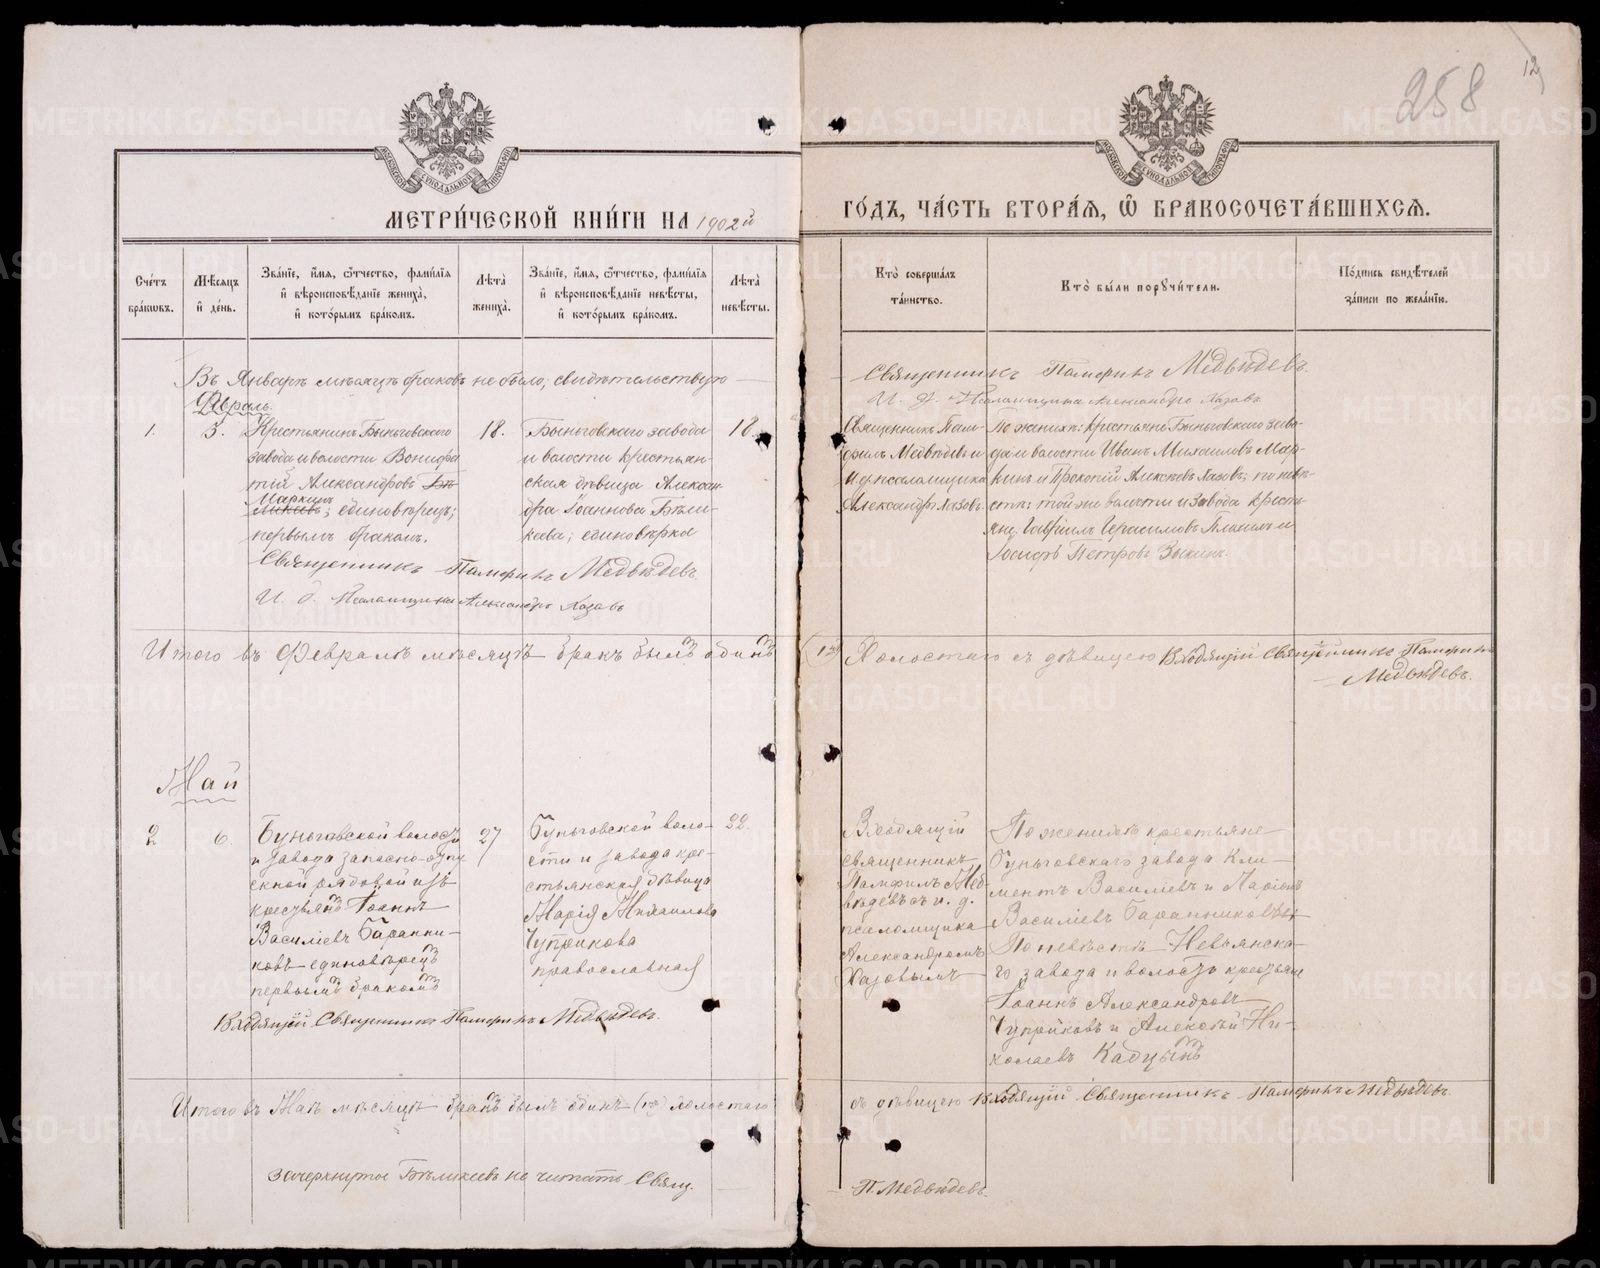 258
12
МОСКОВСКОЙ СѴНОДАЛЬНОЙ ТИПОГРАФІИ
МОСКОВСКОЙ СѴНОДАЛЬНОЙ ТИПОГРАФІИ
МЕТРИ́ЧЕСКОЙ КНИ́ГИ НА 1902й
ГО́ДЪ, ЧА́СТЬ ВТОРА́Я, Ѽ БРАКОСОЧЕТА́ВШИХСЯ.
Сче́тъ бра́ковъ.
Мѣ́сяцъ и́ де́нь.
Зва́нїе, и́мя, ѻ́тчество, фами́лїя и́ вѣроисповѣ́данїе жениха̀, и́ кото́рымъ бра́комъ.
Лѣта̀ жениха̀.
Зва́нїе, и́мя, ѻ́тчество, фами́лїя и́ вѣроисповѣ́данїе невѣ́сты, и́ кото́рымъ бра́комъ.
Лѣта̀ невѣ́сты.
Кто̀ соверша́лъ та́инство.
Кто̀ бы́ли порꙋчи́тели.
По́дпись свидѣ́телей за́писи по жела́нїю.
Въ Январѣ мѣсяцѣ браковъ не было, свидѣтельствую
Священникъ Памфилъ Медвѣдевъ.
И. д. Псаломщика Александръ Хазовъ
Февраль.
1.
3.
Крестьянинъ Быньговскаго
завода и волости Вонифа
тій Александровъ
Маркинъ
единовѣрецъ;
первымъ бракомъ.
18.
Быньговскаго завода
и волости крестьян-
ская дѣвица Алексан
дра Іоаннова Бѣли-
кеева; единовѣрка
18.
Священникъ Пам-
филъ Медвѣдевъ и
И д псаломщика
Александръ Хазовъ.
По женихѣ: крестьяне Быньговскаго заво-
да и волости Иванъ Михаиловъ Мар-
кинъ и Прокопій Алексѣевъ Хазовъ; по невѣ-
стѣ: той же волости и завода кресть-
яне: Гавріилъ Герасимовъ и
Іосифъ Петровъ
Священникъ Памфилъ Медвѣдевъ.
И. д. Псаломщика Александръ Хазовъ
Итого въ Февралѣ мѣсяцѣ бракъ былъ одинъ
(1й) Холостаго съ дѣвицею Входящій Священникъ Памфилъ
Медвѣдевъ.
Май
2
6.
Быньговской волости
и завода запасно-отпу
скной рядовой изъ
крестьянъ Іоаннъ
Василіевъ Баранни-
ковъ единовѣрецъ
первымъ бракомъ
27
Быньговской воло-
сти и завода кре-
стьянская дѣвица
Марія Михаилова
Чуприкова
православная
22.
Входящій
священникъ
Памфилъ Мед-
вѣдевъ съ и. д.
псаломщика
Александромъ
Хазовымъ
По женихѣ крестьяне
Быньговскаго завода Кли-
ментъ Василіевъ и Ларіонъ
Василіевъ Баранниковы
По невѣстѣ Невьянска-
го завода и волости крестьяне
Іоаннъ Александровъ
Чуприковъ и Алексѣй Ни-
колаевъ Кадцынъ
Входящій Священникъ Памфилъ Медвѣдевъ.
Итого въ Маѣ мѣсяцѣ бракъ былъ одинъ (1й) холостаго
съ дѣвицею Входящій Священникъ Памфилъ Медвѣдевъ.
Зачеркнутое Бѣликеевъ не читать Свящ.
П. Медвѣдевъ.
METRIKI.GASO-URAL.RU